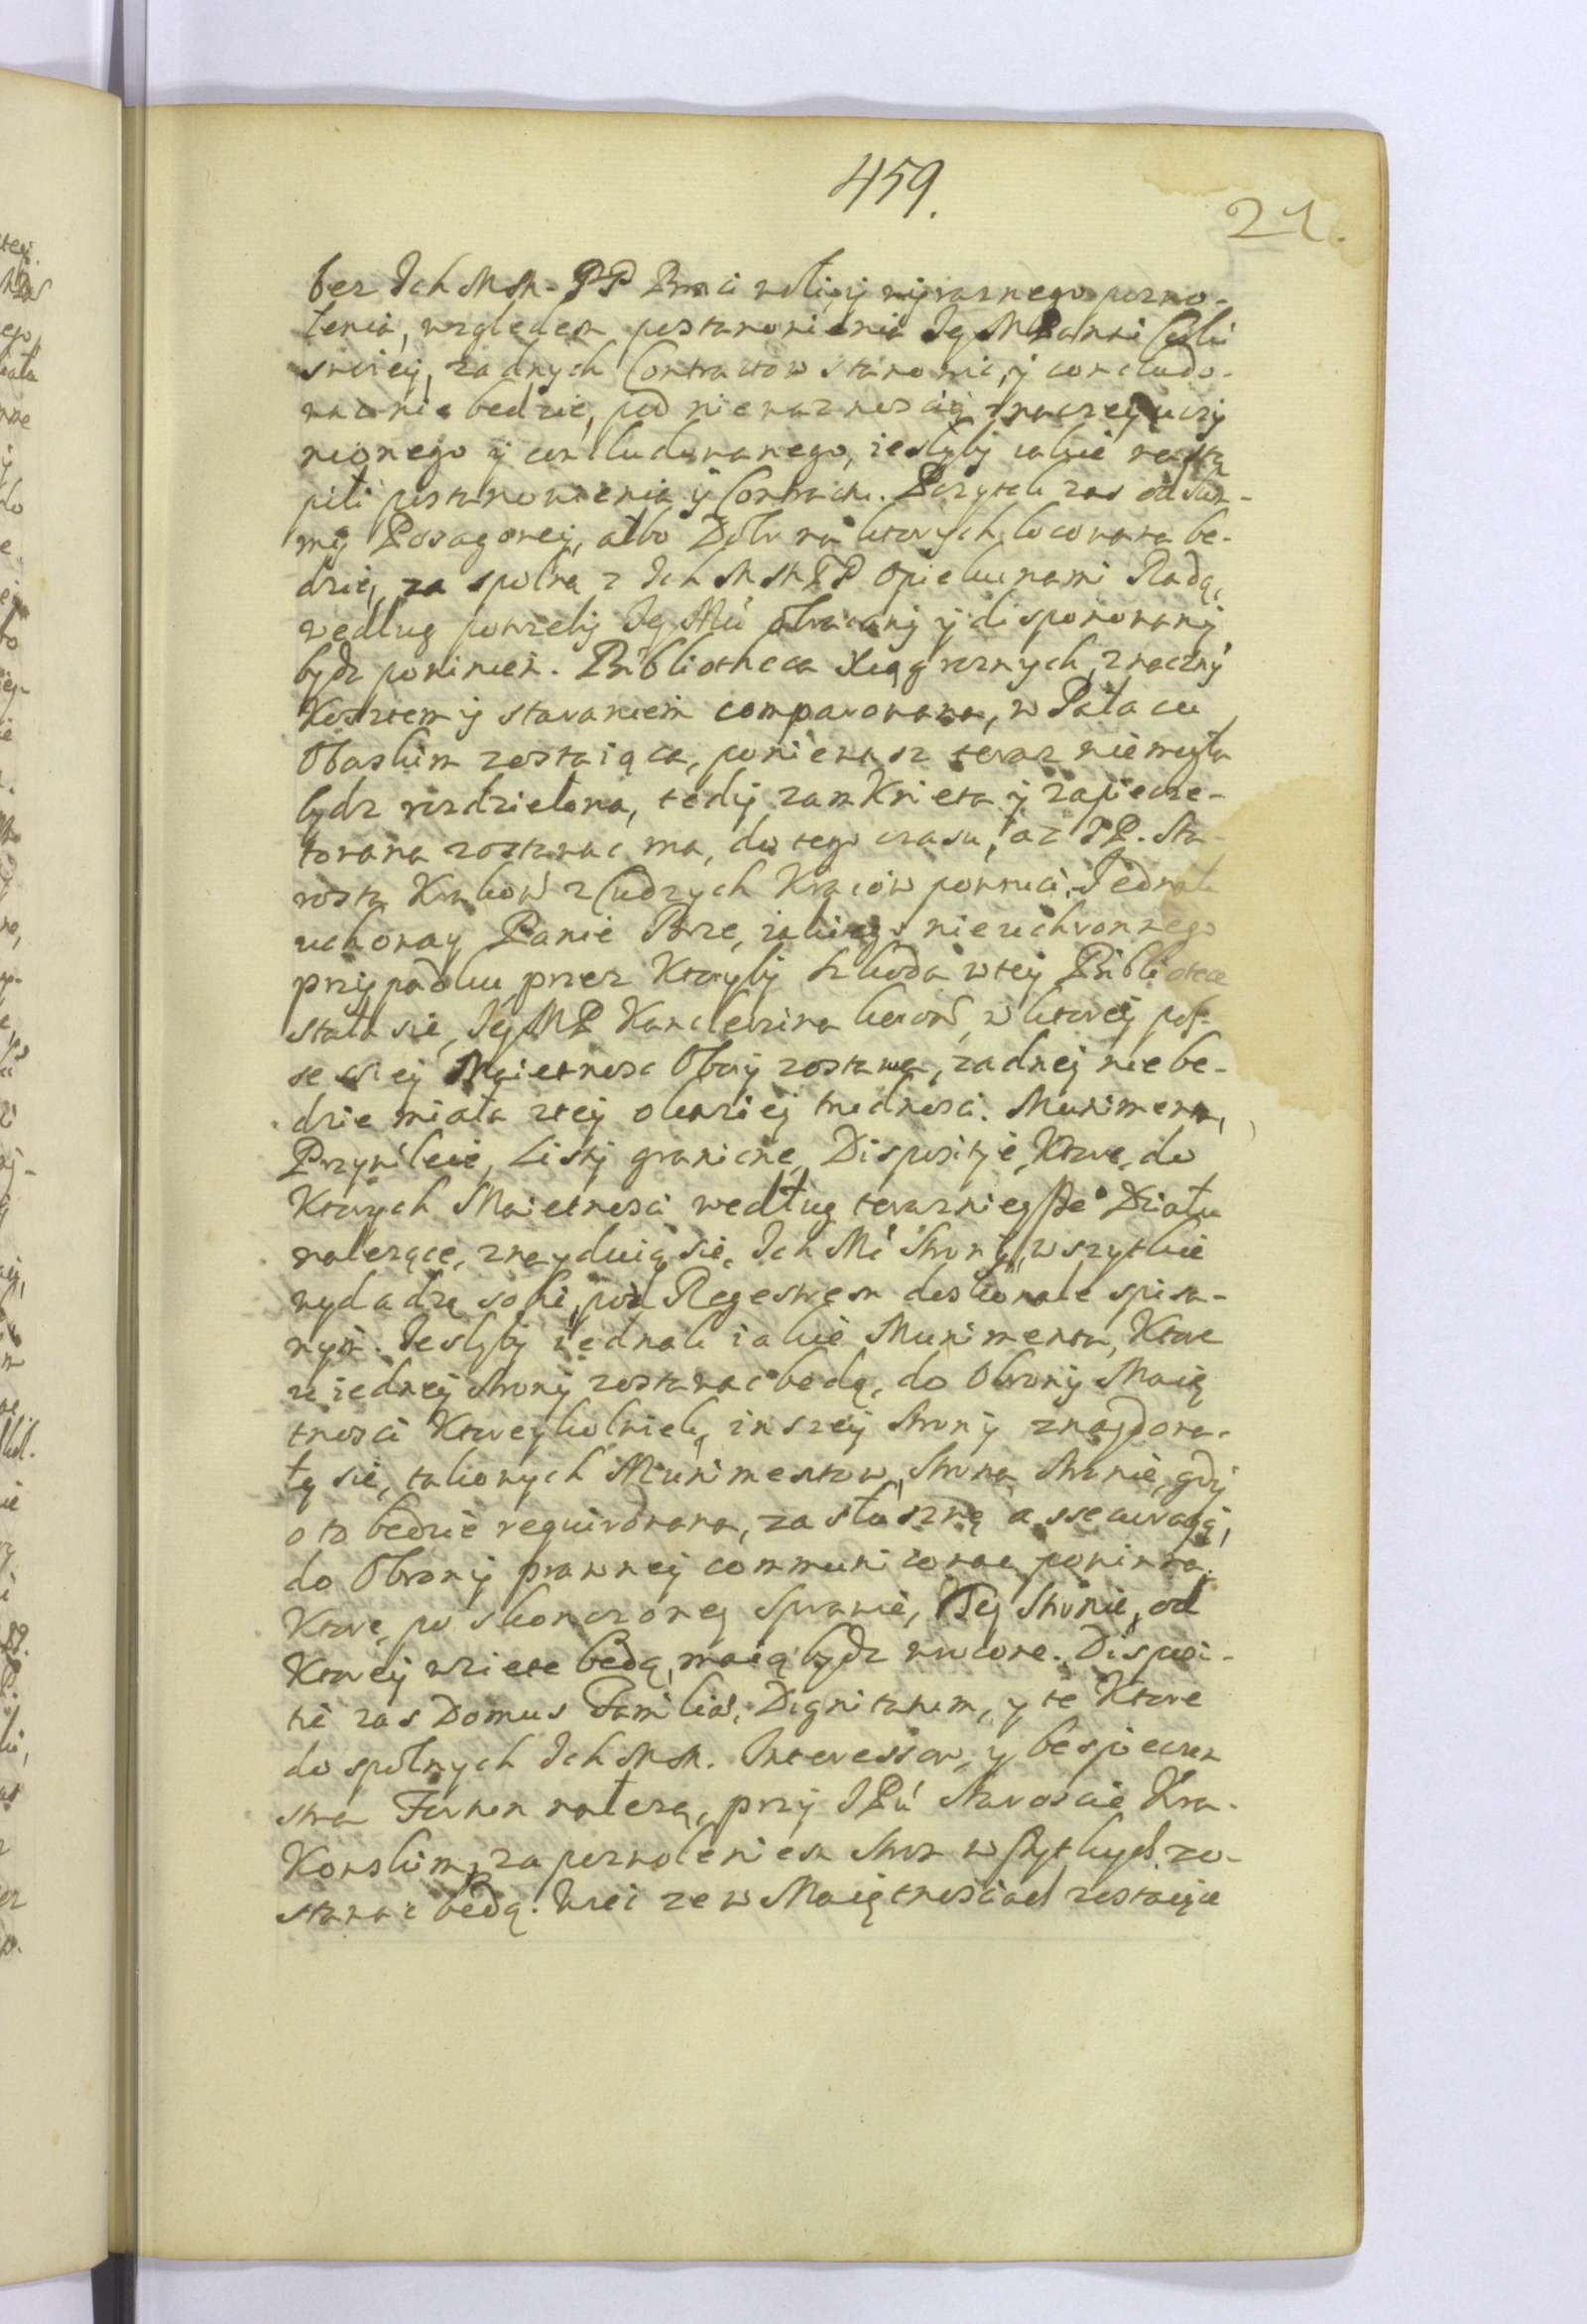 459.
21.
bez Ich MM. PP Braci woli, y wyraznego pozwo-
lenia, wzgledem postanowienia Jey MPanki Corki
swoiey, zadnych Contractow stanowic, y concludo-
wac nie bedzie, pod niewaznoscią inaczey uczy
nionego y concludowanego, iesliby iakie nastą
piti postanowienia y Contractu. Pozytek zas od Sum-
my Posagowey, albo Dobr na ktorych locowana be-
dzie, za spolną z Ich MM PP Opiekunami Radą,
według potrzeby Jey Mci obracany y disponowany
bydz powinien. Bibliotheca Xiąg roznych, znaczny
Kosztem y staraniem comparowana, w Pałacu
Obaskim zostaiąca, poniewasz teraz niemogła
bydz rozdzielona, tedy zamKnieta y zapieczę-
towana zostawac ma, do tego czasu, az JP. Sta-
rosta Krakow z Cudzych Kraiow powruci. Jednak
uchoway Panie Boze, iakiego nieuchronnego
przypadku, przez Ktoryby szkoda w tey Bibliotece
stała sie, Jey MP Kanclerzina kor, w ktorey pos-
sessiey Maietnosc Obory zostawa, zadney nie be-
dzie miała ztey okaziey trudnosci. Munimenta,
Przywileie, Listy graniczne, Disposityie, Ktore do
Ktorych Maietnosci według teraznieyszego Działu
nalezące, znayduią sie, Ich Mć Strony, wszytkie
wydadzą sobie, pod Regestrem doskonale spisa-
nym. Jesliby iednak iakie Munimenta, Ktore
u iedney strony zostawac bedą, do Obrony Maię
tnosci Ktoreykolwiek, inszey strony znaydowa-
ły sie, takowych Munimentow, Strona Stronie, gdy
o to bedzie requirowana, za słuszną assecuratią,
do Obrony prawney communicowac powinna.
Ktore, po skonczoney Sprawie, Tey Stronie, od
Ktorey wziete bedą, maią bydz wrocone. Disposi-
tie zas Domus Familiæ, Dignitatum, y te Ktore
do spolnych Ich MM. Interessow, y bespieczen
stwa Fortun nalezą, przy JPu Staroscie Kra-
Kowskim, za pozwoleniem stron wszytkych zo-
stawac bedą. Wiec ze w Maiętnosciach zostaiące